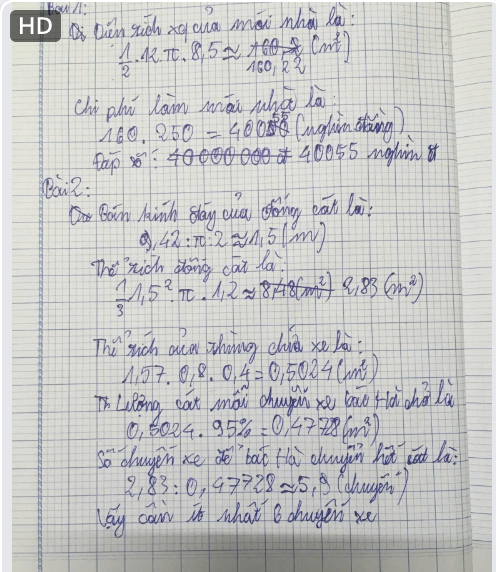 HD
Bài 1:
Diện tích xq của mái nhà là:
1/2 . 12 . π . 8,5 ≈ 160,22 (m²)
Chi phí làm mái nhà là:
160 . 250 = 40055 (nghìn đồng)
Đáp số: 40 000 000 đ 40055 nghìn đ
Bài 2:
Bán kính đáy của đống cát là:
9,42 : π : 2 ≈ 1,5 (m)
Thể tích đống cát là:
1/3 1,5² . π . 1,2 ≈ 8,48 (m²) 2,83 (m²)
Thể tích của thùng chứa xe là:
1,57 . 0,8 . 0,4 = 0,5024 (m³)
Lượng cát mỗi chuyến xe bác Hà chở là
0,5024 . 95% = 0,47728 (m³)
Số chuyến xe để bác Hà chuyển hết cát là:
2,83 : 0,47728 ≈ 5,9 (chuyến)
Vậy cần ít nhất 6 chuyến xe